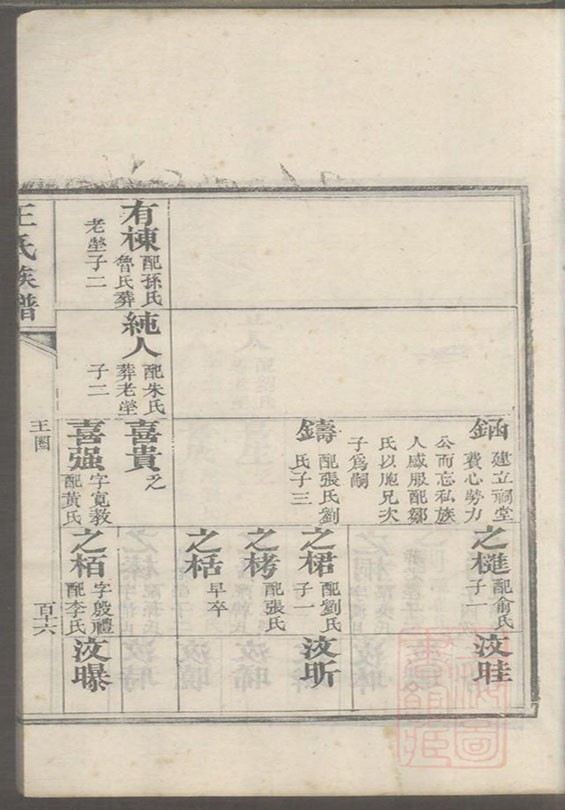 鈵
建立祠堂
費心勞力
公而忘私族
人咸服配鄒
氏以胞兄次
子爲嗣
之樋
配俞氏
子一
汝畦
鑄
配張氏劉
氏子三
之桾
配劉氏
子一
汝昕
之栲
配張氏
之栝
早卒
有棟
配孫氏
魯氏葬
老塋子二
純人
配朱氏
葬老塋
子二
喜貴
喜强
字寛教
配黃氏
之栢
字殷禮
配李氏
汝曝
王氏族譜
百十六